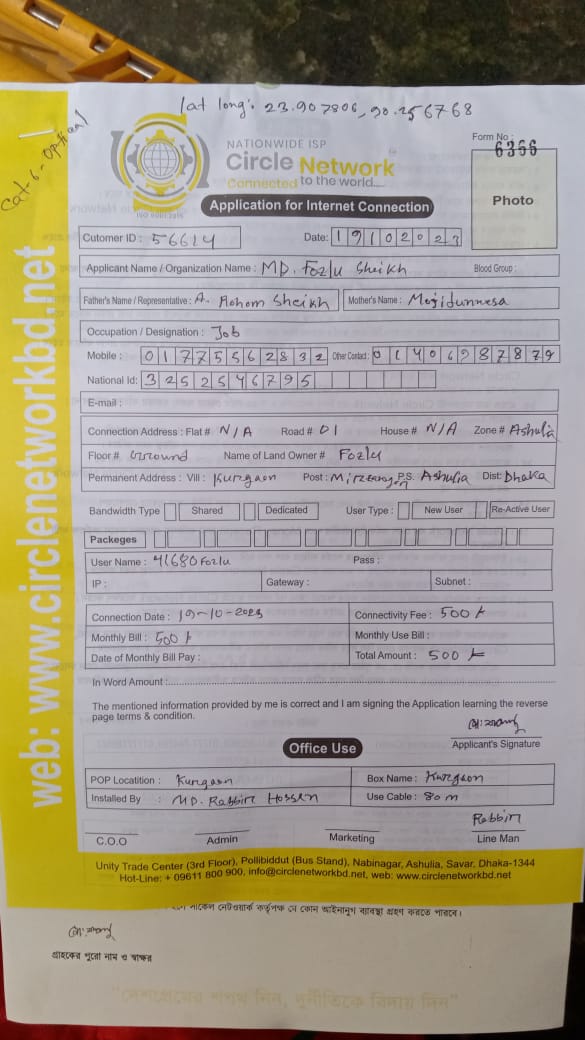 lat long: 23.907806, 90.256768
Cat-6-Optical
Form No :
6356
NATIONWIDE ISP
Circle Network
Connected to the world....
ISO 9001:2015
Photo
Application for Internet Connection
Cutomer ID : 56614 Date: 19102023
Applicant Name / Organization Name : MD. Fozlu Sheikh Blood Group :
Father's Name / Representative : A. Rohom Sheikh Mother's Name : Mojidunnesa
Occupation / Designation : Job
Mobile : 01775562832 Other Contact : 01406987879
National Id: 3252546795
E-mail :
Connection Address : Flat # N/A Road # 01 House # N/A Zone # Ashulia
Floor # Ground Name of Land Owner # Fozlu
Permanent Address : Vill : Kurgaon Post : P.S. Ashulia Dist: Dhaka
Bandwidth Type Shared Dedicated User Type : New User Re-Active User
Packeges
User Name : 41680Fozlu Pass :
IP : Gateway : Subnet :
Connection Date : 19-10-2023 Connectivity Fee : 500/-
Monthly Bill : 500/- Monthly Use Bill :
Date of Monthly Bill Pay : Total Amount : 500/-
In Word Amount :
The mentioned information provided by me is correct and I am signing the Application learning the reverse
page terms & condition.
Applicant's Signature
Office Use
POP Locatition : Kurgaon Box Name : Kurgaon
Installed By : MD. Rabbin Hossen Use Cable : 80 m
Rabbin
C.O.O Admin Marketing Line Man
Unity Trade Center (3rd Floor), Pollibiddut (Bus Stand), Nabinagar, Ashulia, Savar, Dhaka-1344
Hot-Line: + 09611 800 900, info@circlenetworkbd.net, web: www.circlenetworkbd.net
web: www.circlenetworkbd.net
নেটওয়ার্ক কর্তৃপক্ষ যে কোন আইনানুগ ব্যবস্থা গ্রহণ করতে পারবে।
গ্রাহকের পুরো নাম ও স্বাক্ষর
"দেশপ্রেমের শপথ নিন, দুর্নীতিকে বিদায় দিন"